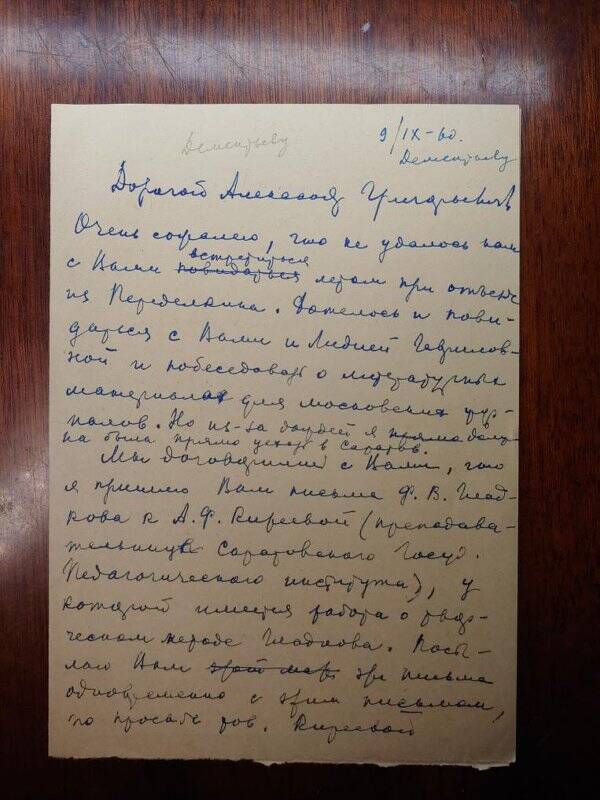 Дементьеву
9/IX-60.
Дементьеву
Дорогой Александр Григорьевич
Очень сожалею, что не удалось нам
встретиться
с Вами повидаться летом при отъезде
из Переделкина. Хотелось и пови-
даться с Вами и Лидией Гавриловной
ной и побеседовать о литературных
материалах для московских жур-
налов. Но из-за дождей я прямо долж-
на была прямо уехать в Саратов.
Мы договорились с Вами, что
я пришлю Вам письма Ф. В. Глад-
кова к А. Ф. Киреевой (преподава-
тельнице Саратовского Госуд.
Педагогического института), у
которой имеется работа о твор-
ческом методе Гладкова. Посы-
лаю Вам эти письма
одновременно с этим письмом,
по просьбе тов. Киреевой